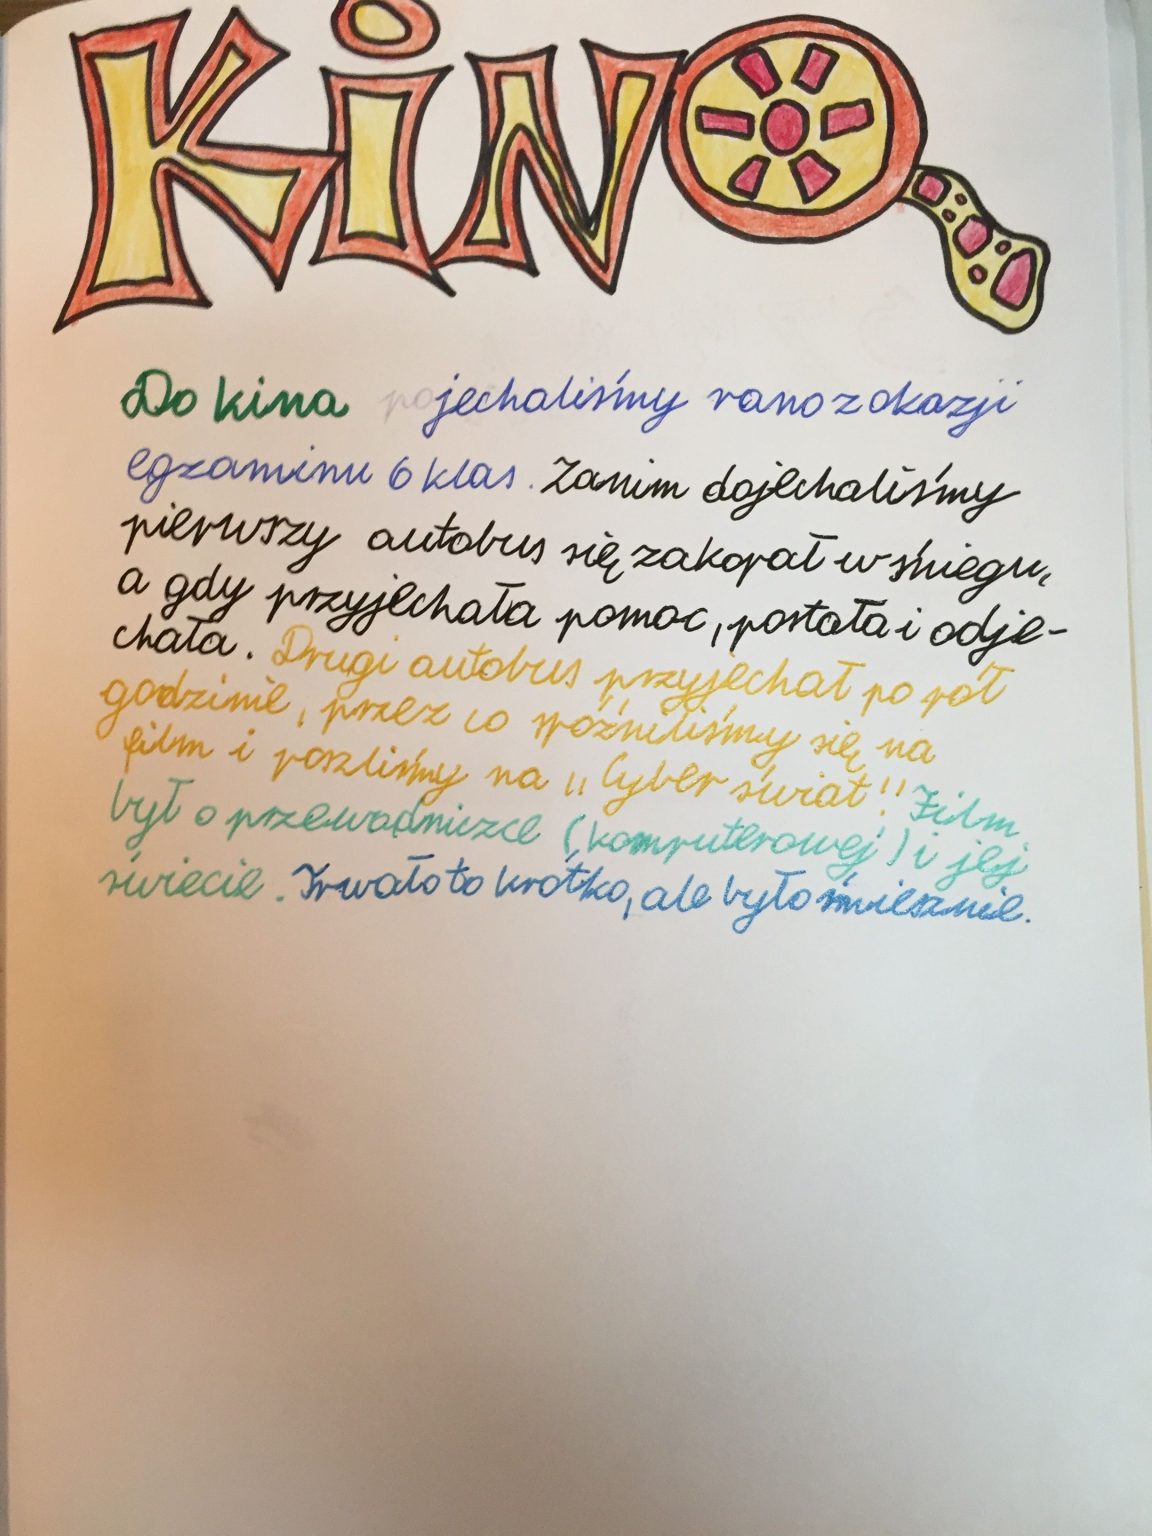 KiNO
Do kina pojechaliśmy rano z okazji
egzaminu 6 klas. Zanim dojechaliśmy
pierwszy autobus się zakopał w śniegu,
a gdy przyjechała pomoc, postała i odje-
chała. Drugi autobus przyjechał po pół
godzinie, przez co spóźniliśmy się na
film i poszliśmy na „Cyber świat" Film
był o przewodniczce (komputerowej) i jej
świecie. Trwało to krótko, ale było śmiesznie.